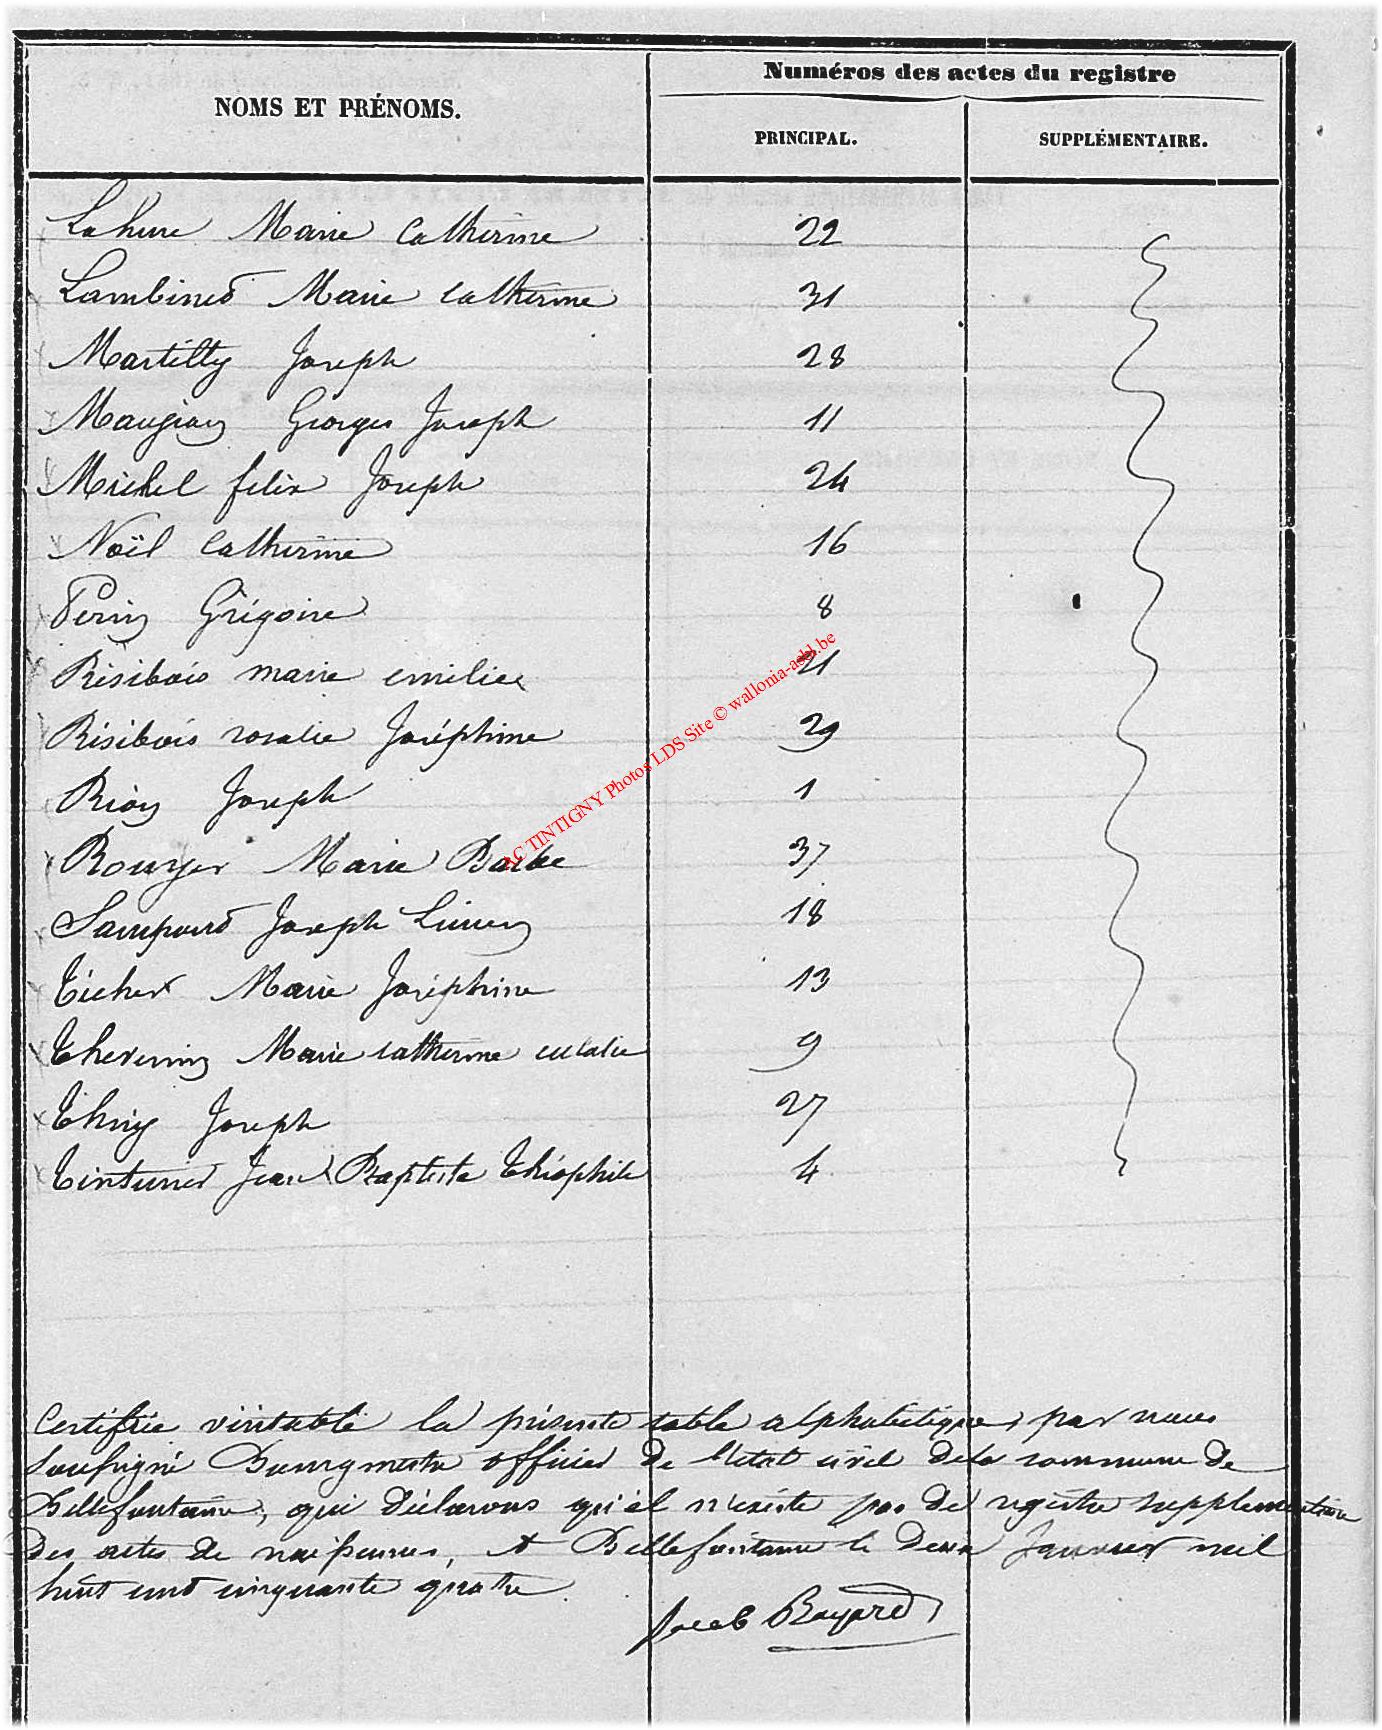 Numéros des actes du registre
NOMS ET PRÉNOMS.
PRINCIPAL.
SUPPLÉMENTAIRE.
Lahure Marie Catherine 22
Lambinet Marie Catherine 31
Martilly Joseph 28
Maugian Georges Joseph 11
Michel felix Joseph 24
Noël Catherine 16
Perin Grégoire 8
Résibois marie emilie 21
Résibois rosalie Joséphine 29
Rion Joseph 1
Rouyer Marie Barbe 37
Sampont Joseph Lucien 18
Ticher Marie Joséphine 13
Thevenin Marie catherine eulalie 9
Thiry Joseph 27
Tinturier Jean Baptiste Théophile 4
AC TINTIGNY Photos LDS Site © wallonia-asbl.be
Certifiée véritable la présente table alphabétique, par nous
soussigné Bourgmestre officier de l'état civil de la commune de
Bellefontaine, qui déclarons qu'il n'existe pas de registre supplémentaire
des actes de naissances, A Bellefontaine le deux Janvier mil
huit cent cinquante quatre.
Jacob Bayard